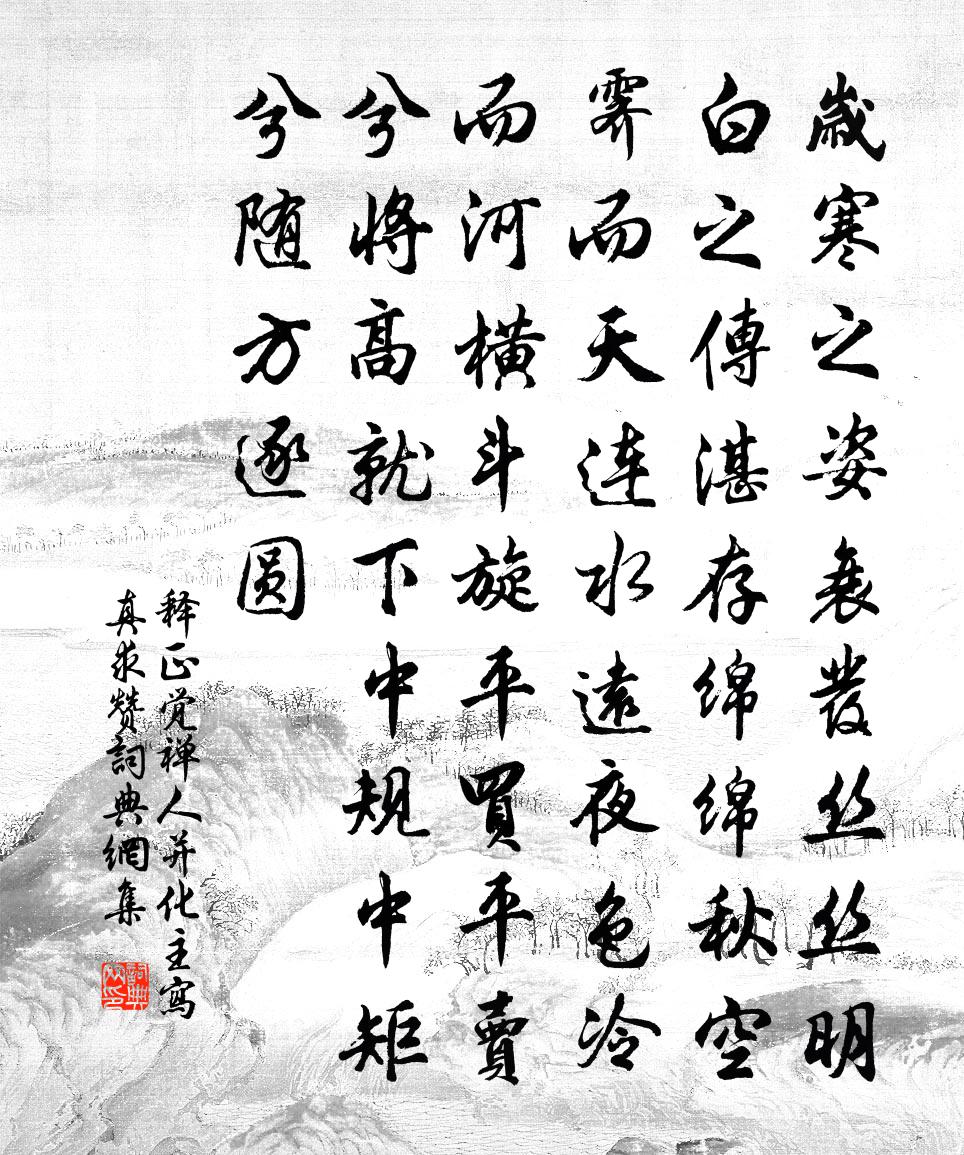 歲寒之姿衰發丝丝明
白之傳湛存绵绵秋空
霽而天连水遠夜色冷
而河橫斗旋平買平賣
兮將高就下中规中矩
兮随方逐圆
释正觉禅人并化主寫
真求赞詞典網集
詞典